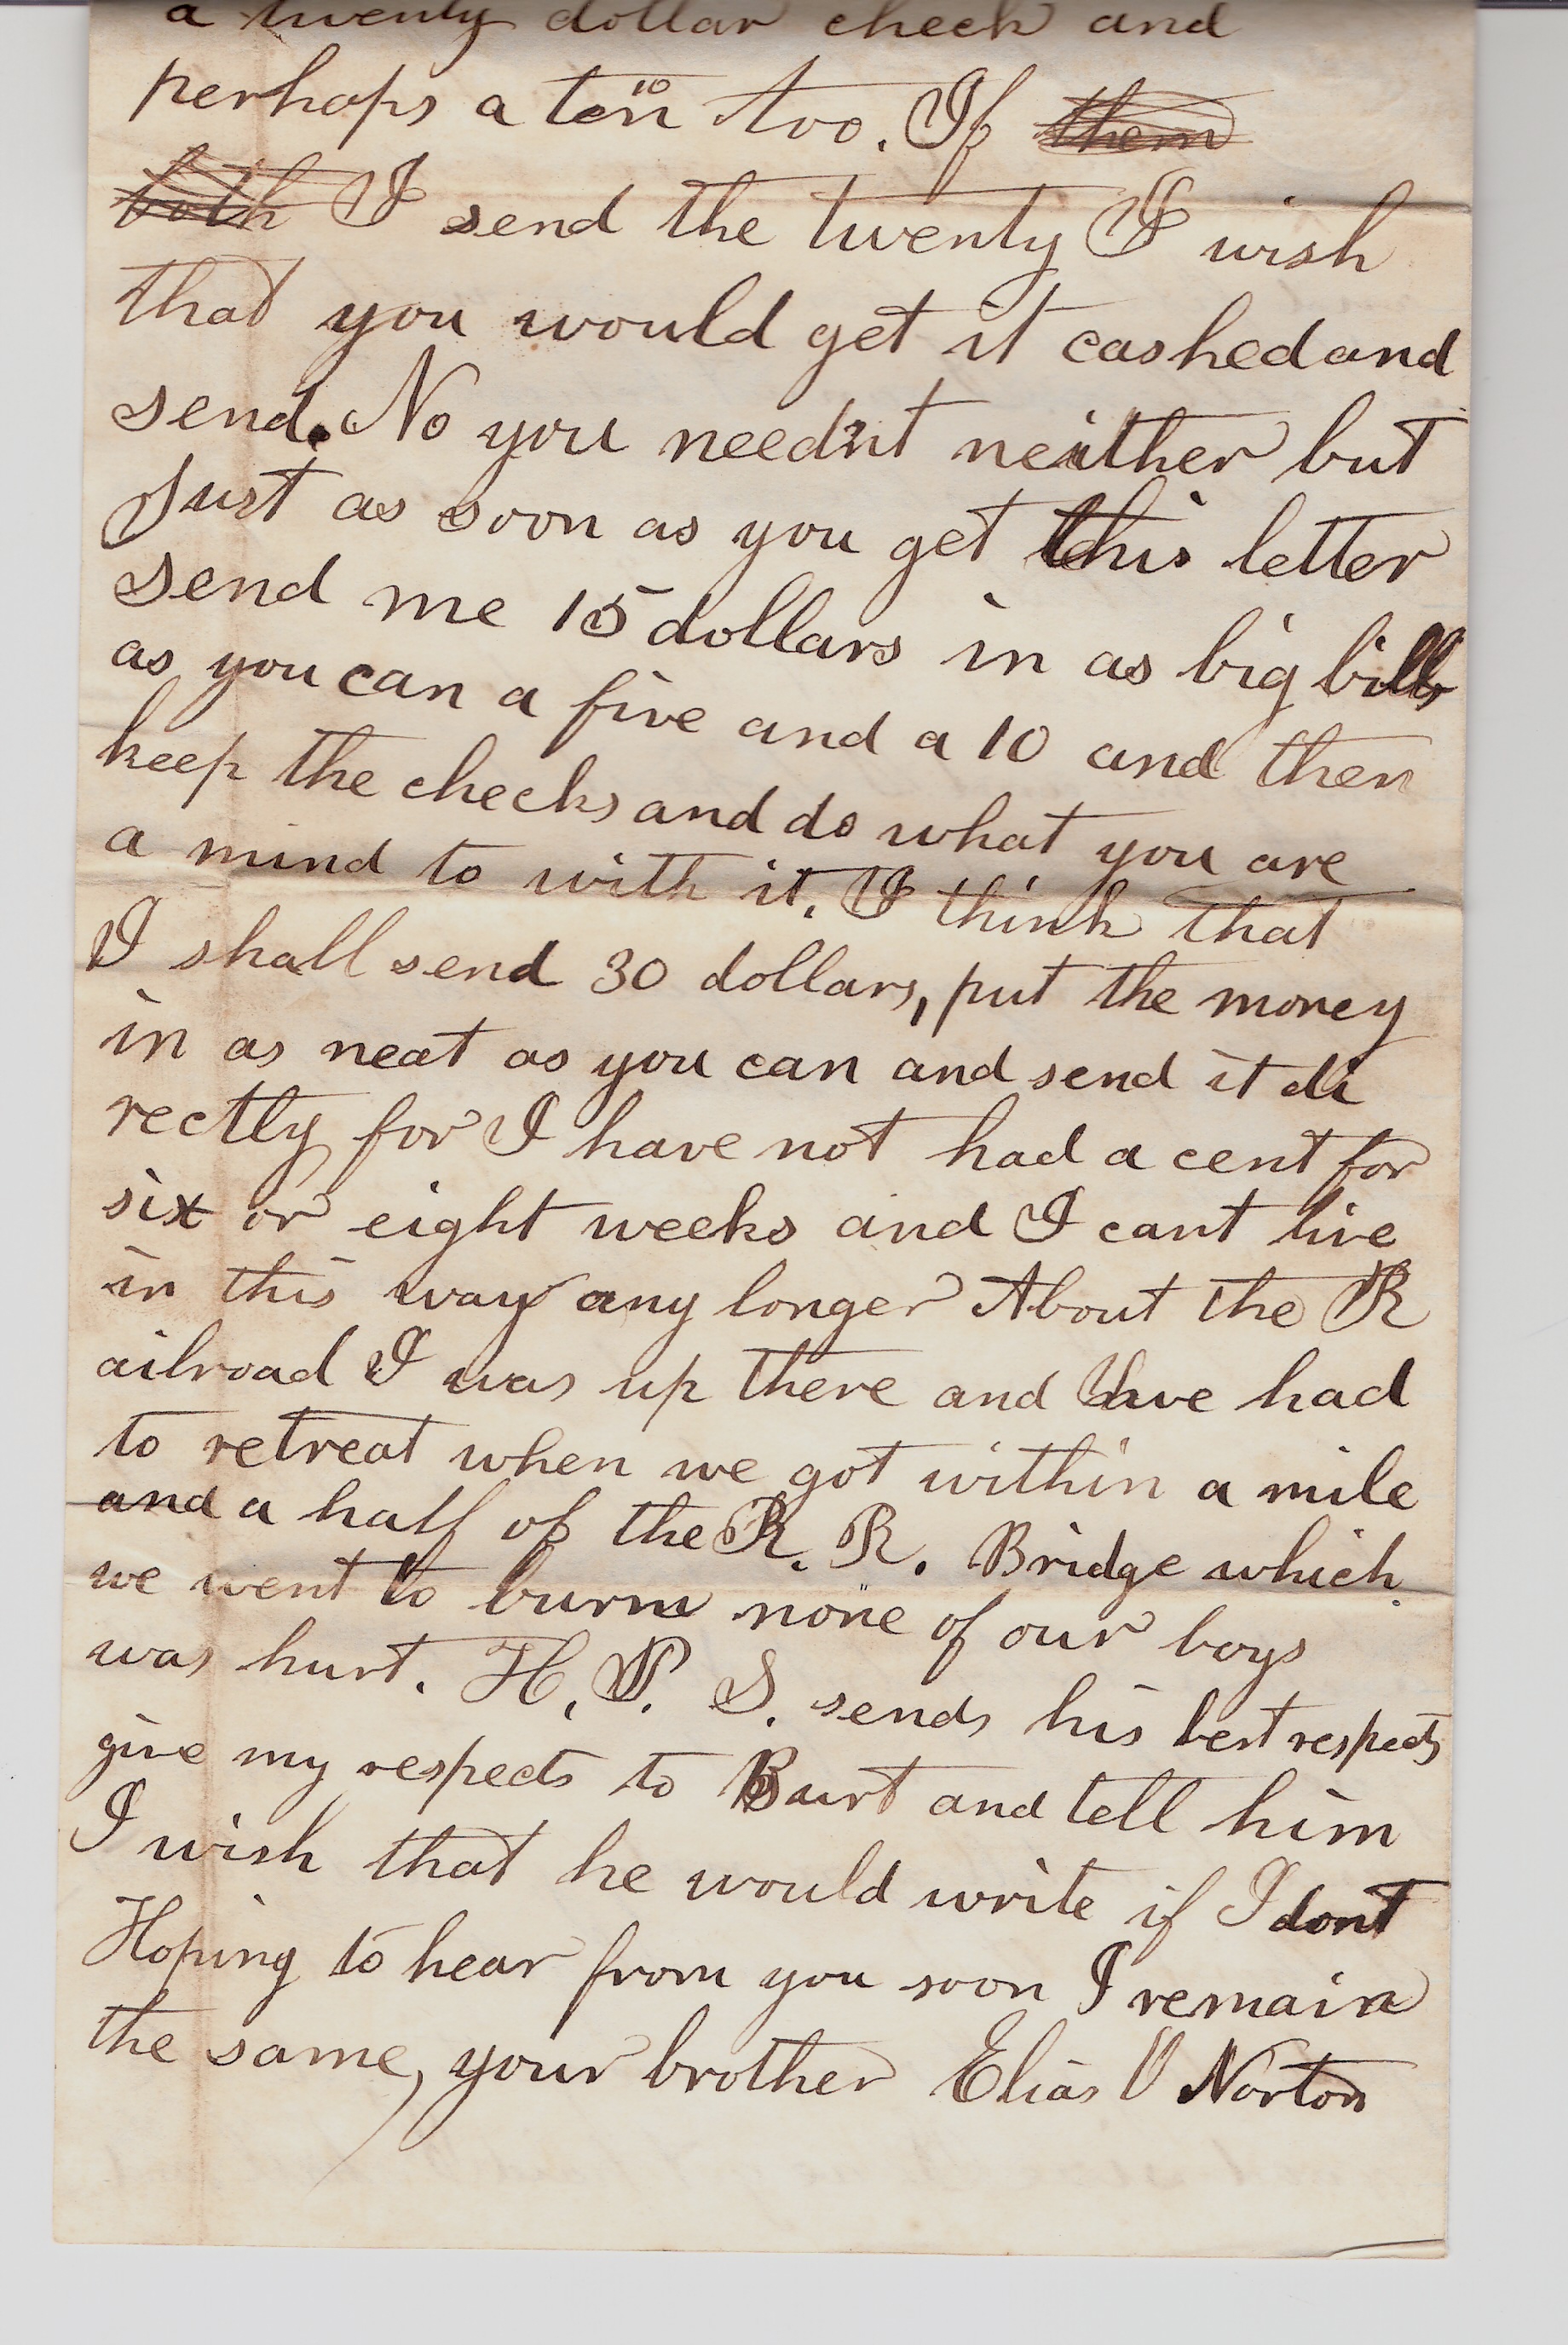 a twenty dollar check and
perhaps a ten 10 too. If them
both I send the twenty I wish
that you would get it cashed and
send. No you needn't neither but
Just as soon as you get this letter
send me 15 dollars in as big bills
as you can a five and a 10 and then
keep the checks and do what you are
a mind to with it. I think that
I shall send 30 dollars, put the money
in as neat as you can and send it di
rectly for I have not had a cent for
six or eight weeks and I cant live
in this way any longer About the R
ailroad I was up there and we had
to retreat when we got within a mile
and a half of the R. R. Bridge which
we went to burn none of our boys
was hurt. H. P. S. sends his best respects
give my respects to Burt and tell him
I wish that he would write if I dont
Hoping to hear from you soon I remain
the same, your brother Elias V Norton